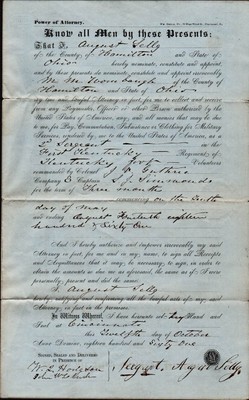 Power of Attorney.
Know all Men by these Presents:
That I, August Selly
of the County of Hamilton and State of
Ohio hereby nominate, constitute and appoint,
and by these presents do nominate, constitute and appoint irrevocably
of the County of
Hamilton and State of Ohio
my true and lawful Attorney
United States of America, any and all moneys that may be due
to me, for Pay, Commutation, Subsistence or Clothing for Military
Services rendered by me to the United States of America, as a
Sergeant
First Kentucky Regiment of
Kentucky Volunteers
commanded by Colonel J. V. Guthrie
Company Captain Simmonds
for the term of Three months
commencing on the
day of May
and ending August eighteen
hundred & Sixty One
And I hereby authorize and empower irrevocably my said
Attorney in fact, for me and in my name, to sign all Receipts
and Acquittances that it may be necessary to sign, in order to
obtain the amounts so due as aforesaid, the same as if I were
personally present and did the same.
I August Selly
hereby
Attorney, in fact, in the premises.
In Witness Whereof, I have hereunto set my Hand and
Seal at Cincinnati
this Twelfth day of October
Anno Domini, eighteen hundred and Sixty One
Signed, Sealed and Delivered
in Presence of
Sergeant, August Selly